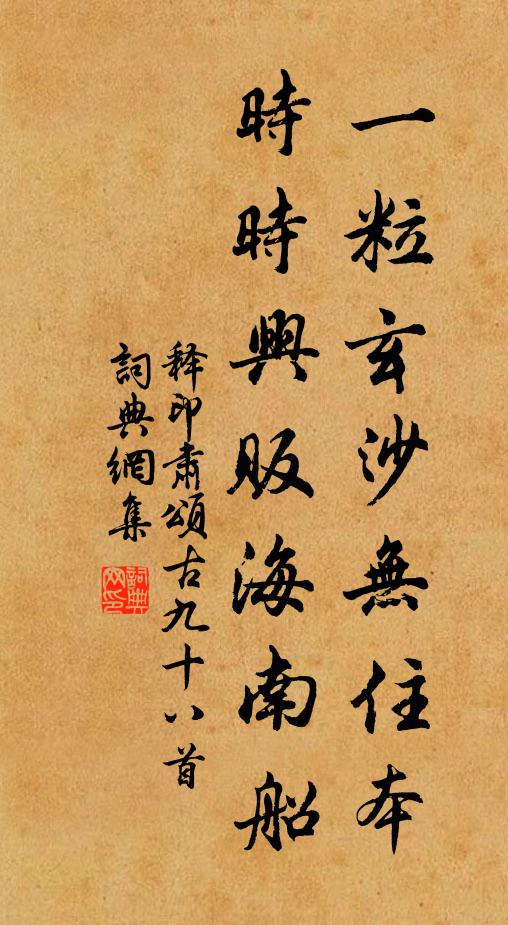 一粒玄沙無住本
時時興販海南船
释印肅頌古九十八首
詞典網集
詞典网印